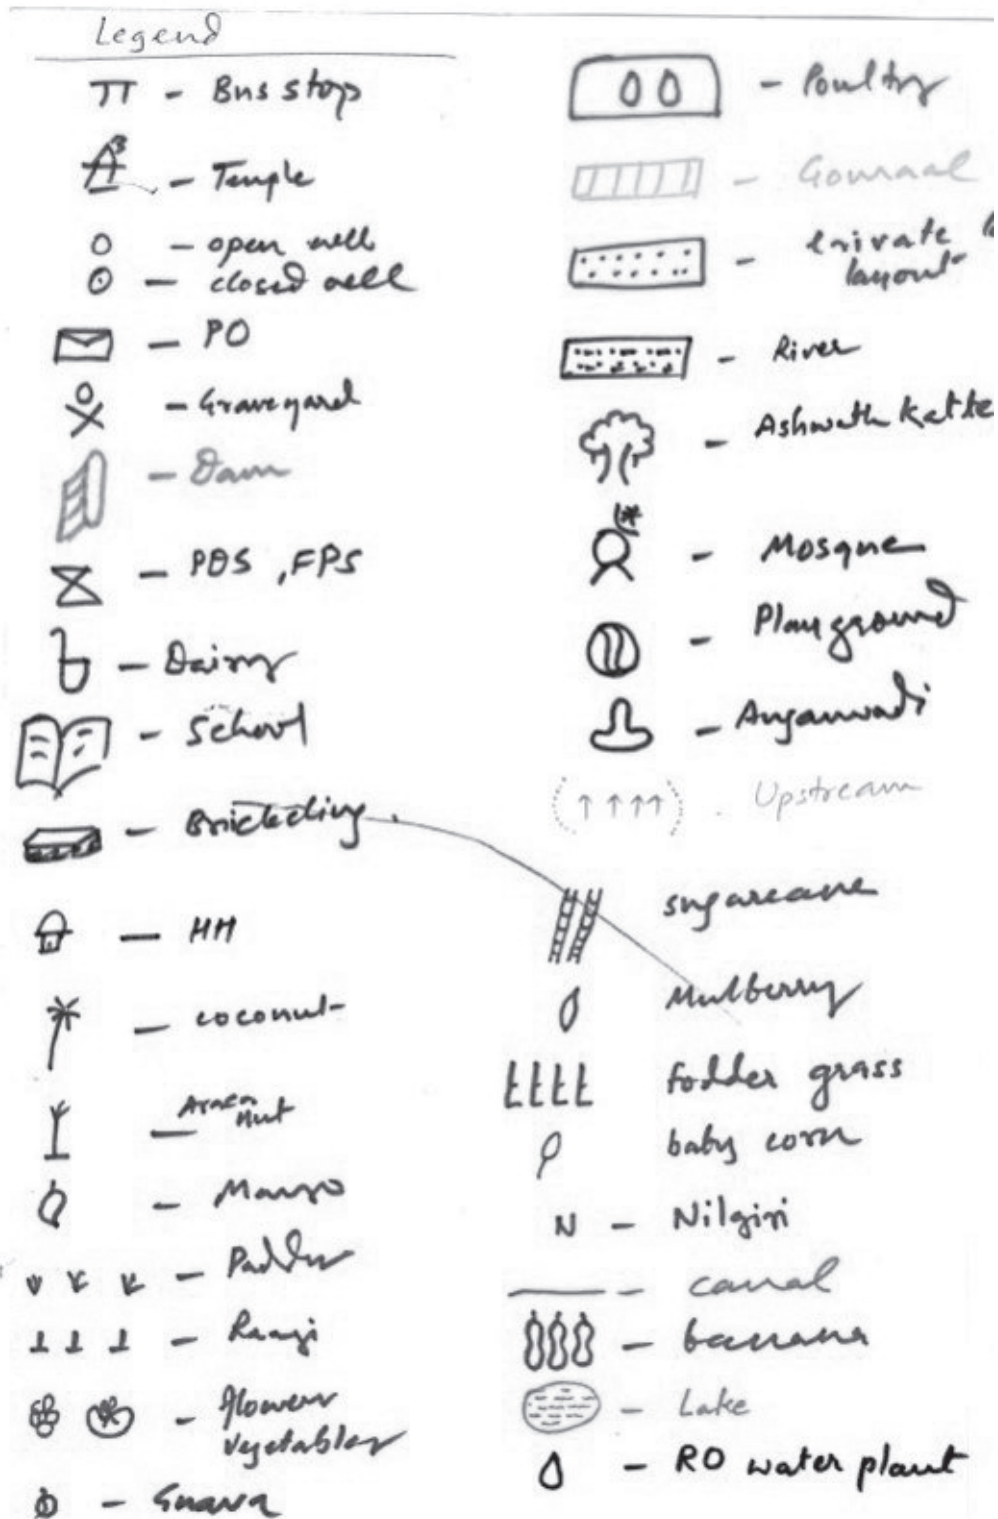 Legend
TT - Bus stop
- Temple
- open well
- closed well
- PO
- Graveyard
- Dam
- PDS, FPS
- Dairy
- School
- HH
- coconut
- Areca nut
- Mango
- Paddy
- Raagi
- flowers
vegetables
- Guava
- Poultry
- Gomaal
- Private
layout
- River
- Ashwath Katte
- Mosque
- Playground
- Anganwadi
Upstream
sugarcane
Mulberry
fodder grass
baby corn
N - Nilgiri
- canal
- banana
- Lake
- RO water plant